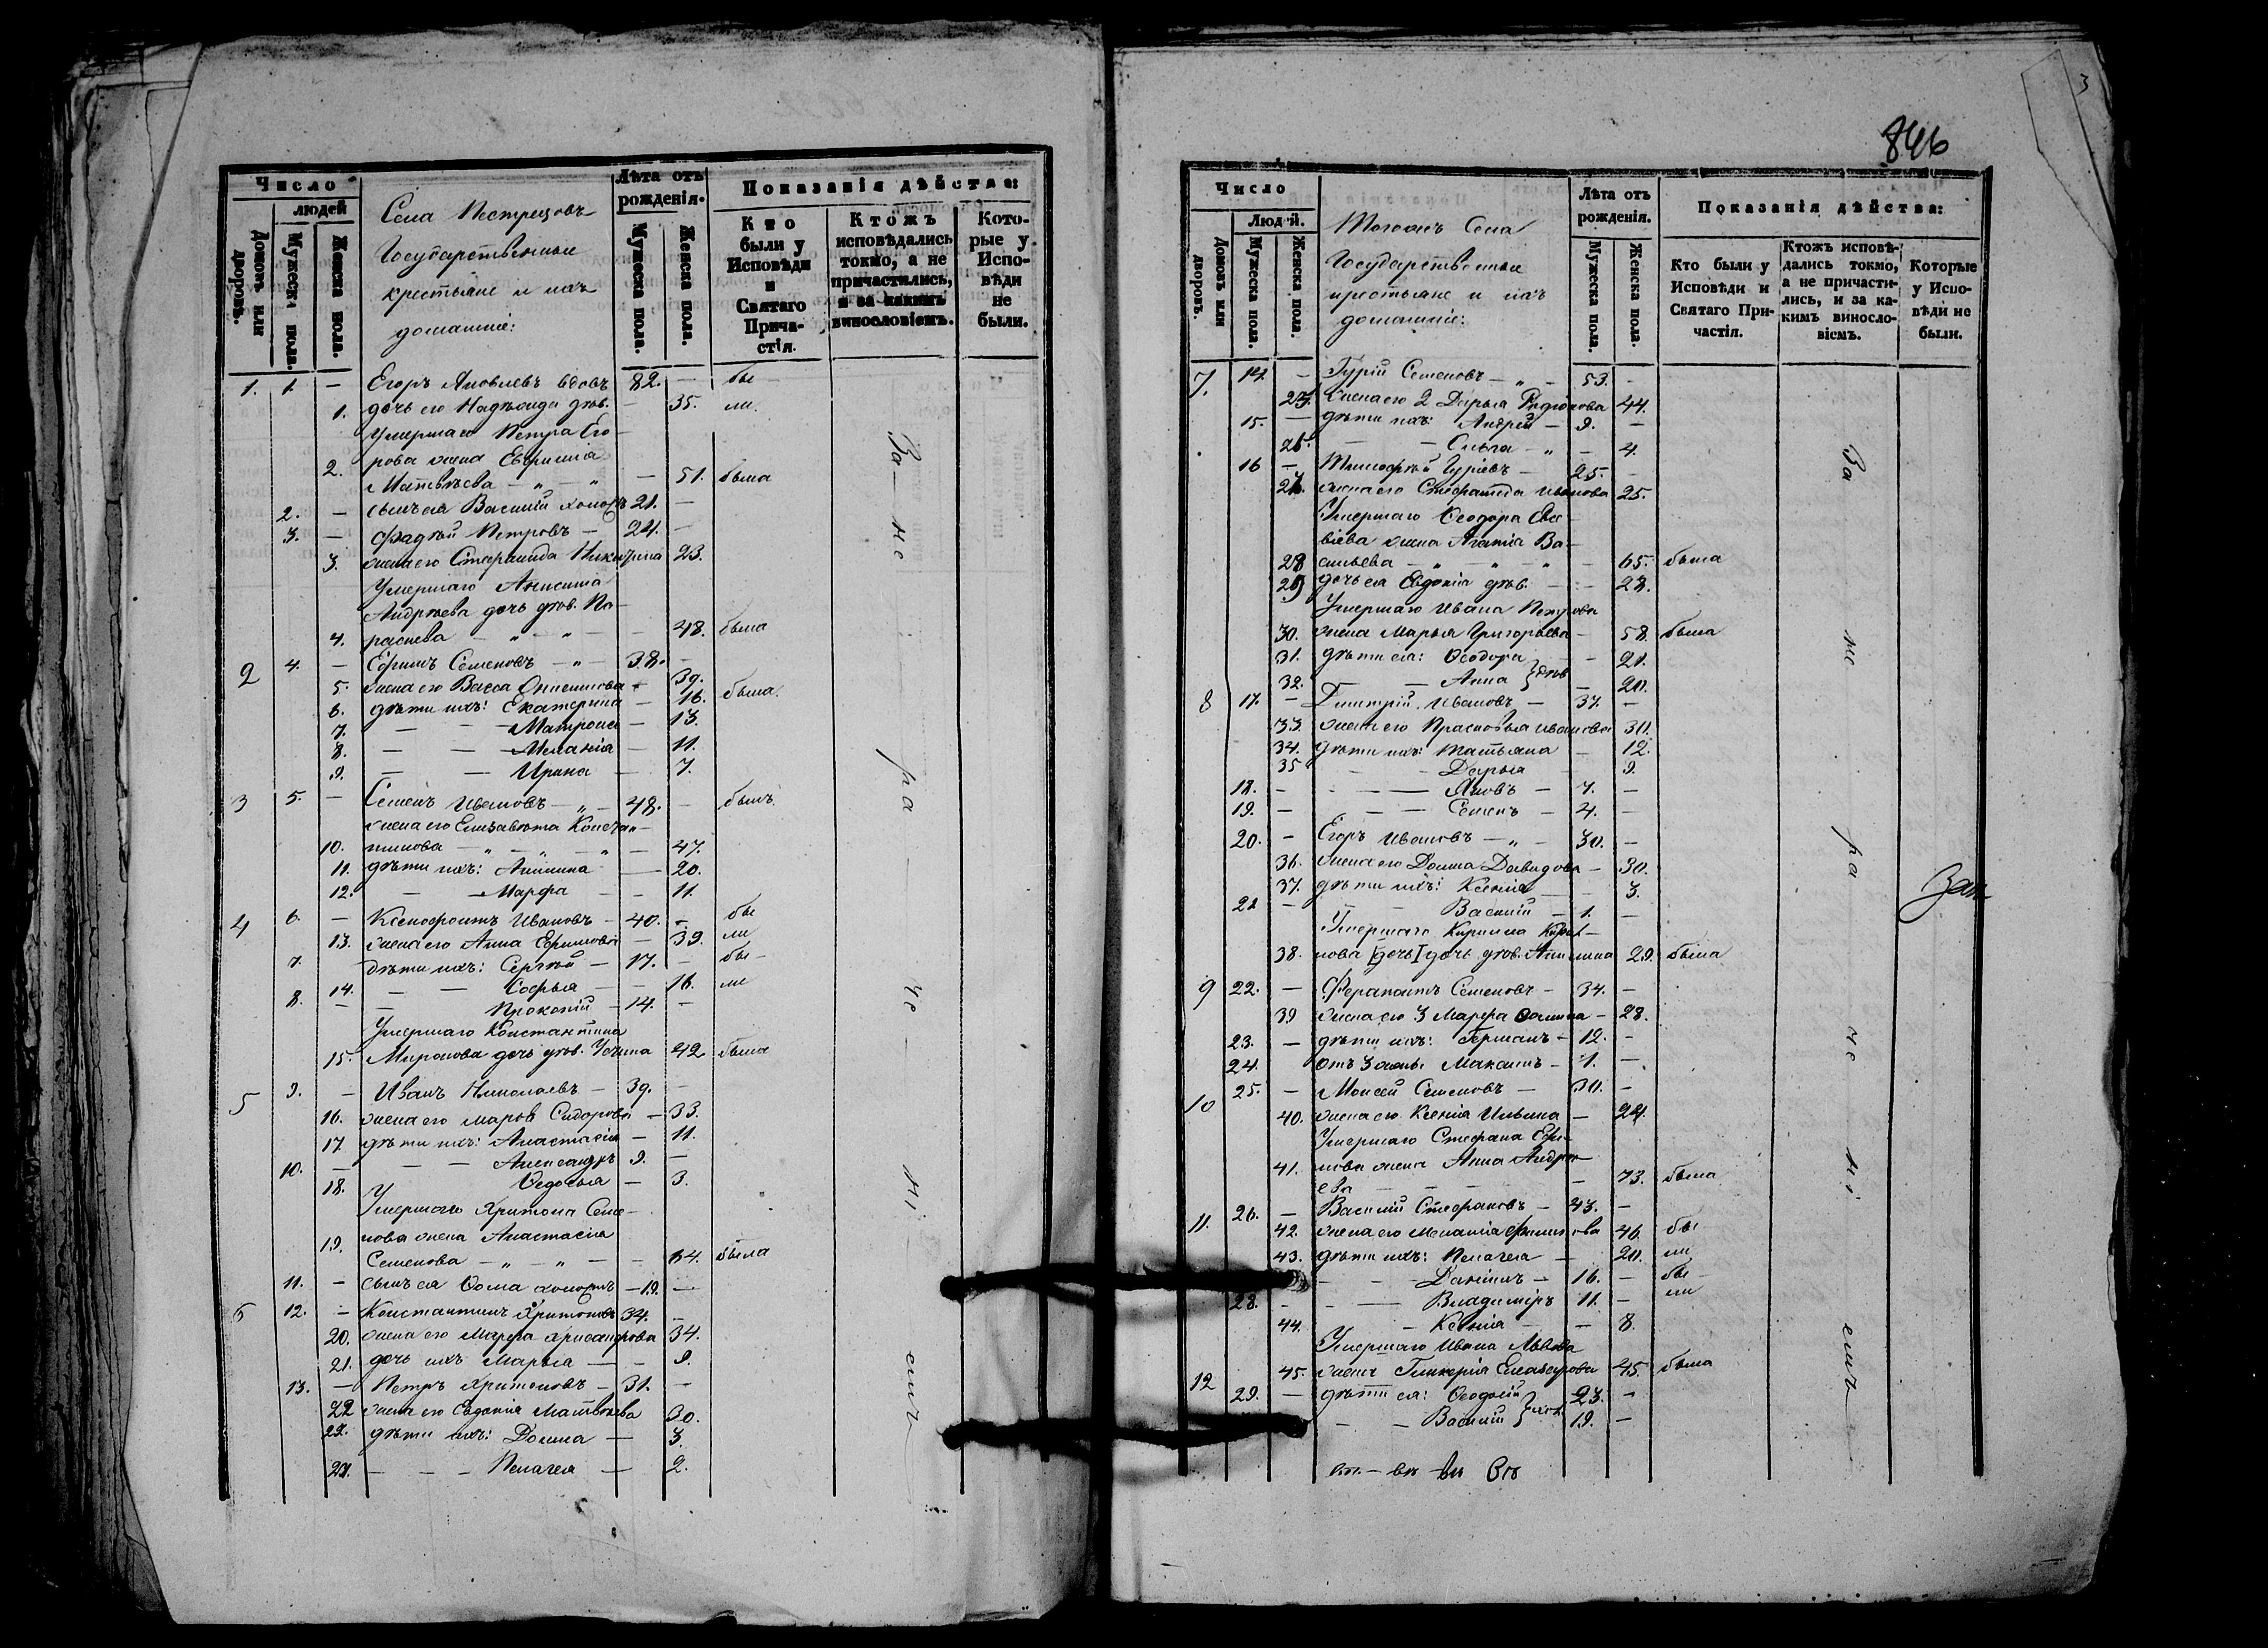 Число
людей
Домовъ или дворовъ.
Мужеска пола.
Женска пола.
Села Пестрецовъ
Государственные
крестьяне и ихъ
домашніе:
Лѣта отъ рожденія.
Мужеска пола.
Женска пола.
Показанія дѣйства:
Кто были у Исповѣди и Святаго Прича-стія.
Ктожъ исповѣдались токмо, а не причастились, и за какимъ винословіемъ.
Кото-рые у Испо-вѣди не были.
1. 1. — Егоръ Яковлевъ вдовъ 82. — бы
1. дочь его Надежда дѣв. — 35. ли.
Умершаго Петра Его-
рова жена Евфимія
2. Матвѣева — „ — „ — 51. была
2. — сынъ ея Василій холостъ 21. —
3. — Фадѣй Петровъ — 24. —
3. жена его Стефанида Никитина 23.
Умершаго Анисима
Андреева дочь дѣв. Па-
4. расκева — „ — „ — — 48. была
2 4. — Ефимъ Семеновъ — „ — 38. —
5. жена его Васса Онисимова — 39.
6. дѣти ихъ: Екатерина — 16. была.
7. — — Матрона — 13.
8. — — Меланія — 11.
9. — — Ирина — 7.
3 5. — Семенъ Ивановъ — „ — 48. — былъ
жена его Елизавета Констан-
10. тинова — „ — „ — „ — 47.
11. дѣти ихъ: Акилина — 20.
12. — — Марфа — 11.
4 6. — Ксенофонтъ Ивановъ — 40. — бы
13. жена его Анна Ефимова — 39. ли
7. дѣти ихъ: Сергѣй — 17. — бы-
14. — — Софья — — 16. ли
8. — — Прокопій — 14. —
Умершаго Константина
15. Миронова дочь дѣв. Устина 42 была
5 9. — Иванъ Николаевъ — 39. —
16. жена его Марья Сидорова — 33.
17. дѣти ихъ: Анастасія — 11.
10. — — — Александръ 9. —
18. Ѳедосья — 3.
Умершаго Харитона Семе-
19. нова жена Анастасія
Семенова — „ — „ — — 64. была
11. — сынъ ея Ѳома холостъ — 19. —
6 12. — Константинъ Харитоновъ 34. —
20. жена его Марфа Александрова 34.
21. дочь ихъ Марья — — 9.
13. — Петръ Харитоновъ — 31. —
22 жена его Евдокія Матвѣева 30.
23. дѣти ихъ: Домна — 3.
24. — — — Пелагея — 2.
За — не — ра — че — ні — емъ
846
3
Число
Людей.
Домовъ или дворовъ.
Мужеска пола.
Женска пола.
Тогожъ Села
Государственные
крестьяне и ихъ
домашніе:
Лѣта отъ рожденія.
Мужеска пола.
Женска пола.
Показанія дѣйства:
Кто были у Исповѣди и Святаго При-частія.
Ктожъ исповѣ-дались токмо, а не причасти-лись, и за ка-кимъ винословіемъ.
Которые у Испо-вѣди не были.
7. 14 — Гурій Семеновъ — „ — 53. —
25. жена его 2 Дарья Родіонова 44.
15. — дѣти ихъ: Андрей — 9. —
26. — — Ольга — „ — 4.
16 — Тимофѣй Гуріевъ — 25. —
27. жена его Стефанида Иванова 25.
Умершаго Ѳеодора Сав-
віева жена Агафія Ва-
28 сильева — „ — „ — „ — 65. была
29 дочь ея Евдокія дѣв. — — 28.
Умершаго Ивана Петрова
30. жена Марья Григорьева — 58. была
31. дѣти ея: Ѳеодора — 21.
32. — — Анна } дѣв. — 20.
8 17. — Димитрій Ивановъ — 37. —
33. жена его Прасковья Иванова 30.
34. дѣти ихъ: Татьяна — 12.
35 — — Дарья 9.
18. — — — Яковъ — 7. —
19. — — — Семенъ — 4. —
20. — Егоръ Ивановъ — „ — 30. —
36. жена его Домна Давидова — 30.
37. дѣти ихъ: Ксенія — 3.
21 — — Василій — 1. —
Умершаго Кирилла Кирил-
38. лова [дочь] дочь дѣв. Акилина 29. была
9 22. — Ферапонтъ Семеновъ — 34. —
39 жена его 3 Марфа Ѳомина — 28.
23. — дѣти ихъ: Германъ — 12. —
24. отъ 3 жены Макаръ — 1. —
10 25. — Моисей Семеновъ — 30. —
40. жена его Ксенія Ильина — 24.
Умершаго Стефана Ефи-
41. мова жена Анна Андре-
ева — — — — — 73. была
11. 26. — Василій Стефановъ — 43. —
42. жена его Меланія Филипова 46. бы
43. дѣти ихъ: Пелагея — 20. ли
— — Даніилъ — 16. — бы-
28. — — Владимиръ 11. — ли
44. — Ксенія — — 8.
Умершаго Ивана Львова
12 45. жена Гликерія Елеазарова 45. была
29. — дѣти ея: Ѳеодосій 23. —
— — Василій } хол. 19. —
За не ра че ні емъ